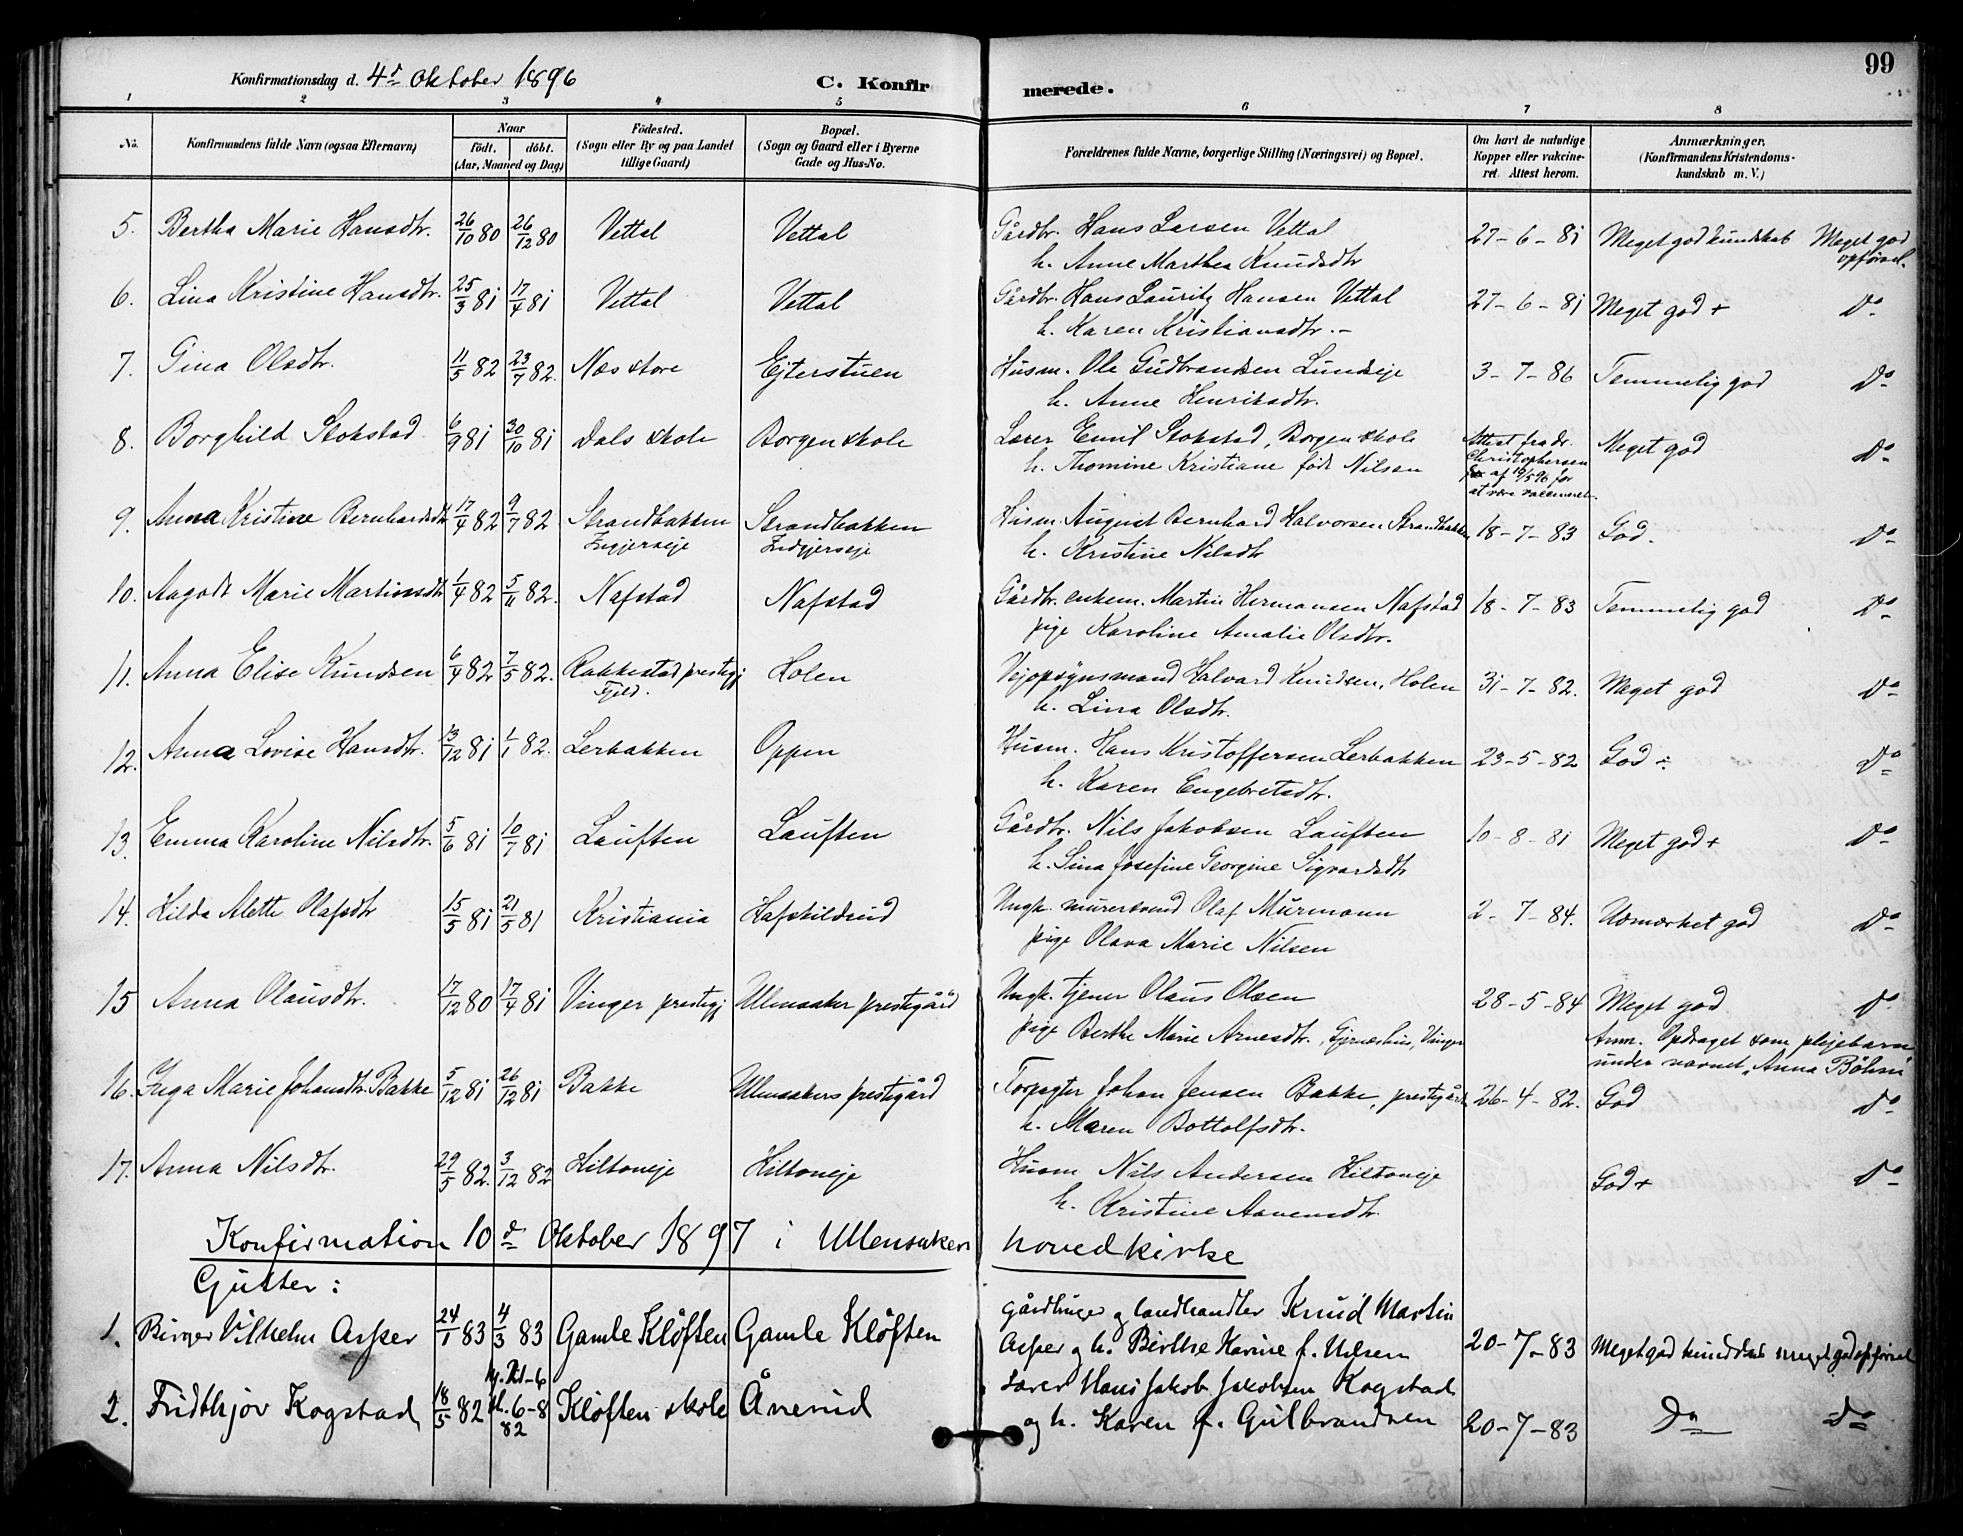 99
Konfirmationsdag d. 4de Oktober 1896 C. Konfirmerede.
1 2 3 4 5 6 7 8
No. Konfirmandens fulde Navn (ogsaa Efternavn) Naar født. døbt. (Aar, Maaned og Dag) Fødested. (Sogn eller By og paa Landet tillige Gaard) Bopæl. (Sogn og Gaard eller i Byerne Gade og Hus-No. Forældrenes fulde Navne, borgerlige Stilling (Næringsvei) og Bopæl. Om havt de naturlige Kopper eller vakcineret. Attest herom. Anmærkninger. (Konfirmandens Kristendomskundskab m. V.)
5. Bertha Marie Hansdtr. 26/10 80 26/12 80 Vettal Vettal Gårdbr. Hans Larsen Vettal 27-6-81 Meget god kundskab Meget god opførsel.
h. Anne Marthea Knudsdtr
6. Lina Kristine Hansdtr. 25/3 81 17/4 81 Vettal Vettal Gårdbr. Hans Lauritz Hansen Vettal 27-6-81 Meget god + Do
h. Karen Kristiansdtr.
7. Gina Olsdtr. 11/5 82 23/7 82. Næs store Ejterstuen Husm. Ole Gudbrandsen Lundseje 3-7-86 Temmelig god Do
h. Anne Henriksdtr.
8. Borghild Stokstad 6/9 81 30/10 81 Dals skole Borgen skole Lærer Emil Stokstad, Borgen skole Attest fra dr. Christophersen af 10/5 96 for at være vaccineret. Meget god Do
h. Thomine Kristiane født Nilsen
9. Anna Kristine Bernhardsdtr 17/4 82 9/7 82 Strandbakken Strandbakken Husm. August Bernhard Halvorsen Strandbakken 18-7-83 God. Do
Indgjerseje h. Kristine Nilsdtr
10. Aagodt Marie Martinsdtr 1/4 82 5/11 82. Nafstad Nafstad Gårdbr. enkem. Martin Hermansen Nafstad 18-7-83 Temmelig god Do
pige Karoline Amalie Olsdtr.
11. Anna Elise Knudsen 6/4 82 7/5 82. Rakkestad prestegj Holen Vejopsynsmand Halvard Knudsen, Holen 31-7-82. Meget god Do
h. Lina Olsdtr.
12. Anna Lovise Hansdtr. 13/12 81 1/1 82. Lerbakken Oppen Husm. Hans Kristoffersen Lerbakken 23-5-82 God ÷ Do
h. Karen Engebretsdtr.
13. Emma Karoline Nilsdtr. 5/6 81 10/7 81 Lauften Lauften Gårdbr. Nils Jakobsen Lauften 10-8-81 Meget god + Do
h. Sina Josefine Georgine Sigvardsdtr
14. Hilda Alette Olafsdtr 15/5 81 21/5 81 Kristiania Hafskildrud Ungk. murersvend Olaf Murmann 2-7-84. Udmærket god Do
pige Olava Marie Nilsen
15 Anna Olausdtr. 17/12 80 17/4 81 Vinger prestegj Ullensaker prestegård Ungk. tjener Olaus Olsen 28-5-84 Meget god Do
pige Berthe Marie Arnesdtr., Vinger Anm. Opdraget som plejebarn
under navnet „Anna Böhn"
16. Inga Marie Johansdtr. Bakke 5/12 81 26/12 81 Bakke Ullensakers prestegård Forpagter Johan Jensen Bakke, prestegård 26-4-82. God Do
h. Maren Bottolfsdtr.
17. Anna Nilsdtr. 29/5 82. 3/12 82 Hiltoneje Hiltoneje Husm Nils Andersen Hiltoneje God + Do
h. Kristine Aanensdtr.
Konfirmation 10de Oktober 1897 i Ullensakers hovedkirke
Gutter:
1. Birger Vilhelm Asper 24/1 83 4/3 83 Gamle Kløften Gamle Kløften Gårdbruger og landhandler Knud Martin
Asper og h. Birthe Karine f. Nilsen 20-7-83 Meget god kundskab meget god opførsel
2. Fridthjov Kogstad 18/5 82 6-8 82 Kløften skole Ånerud Lærer Hans Jakob Jakobsen Kogstad
og h. Karen f. Gulbrandsen 20-7-83 Do Do